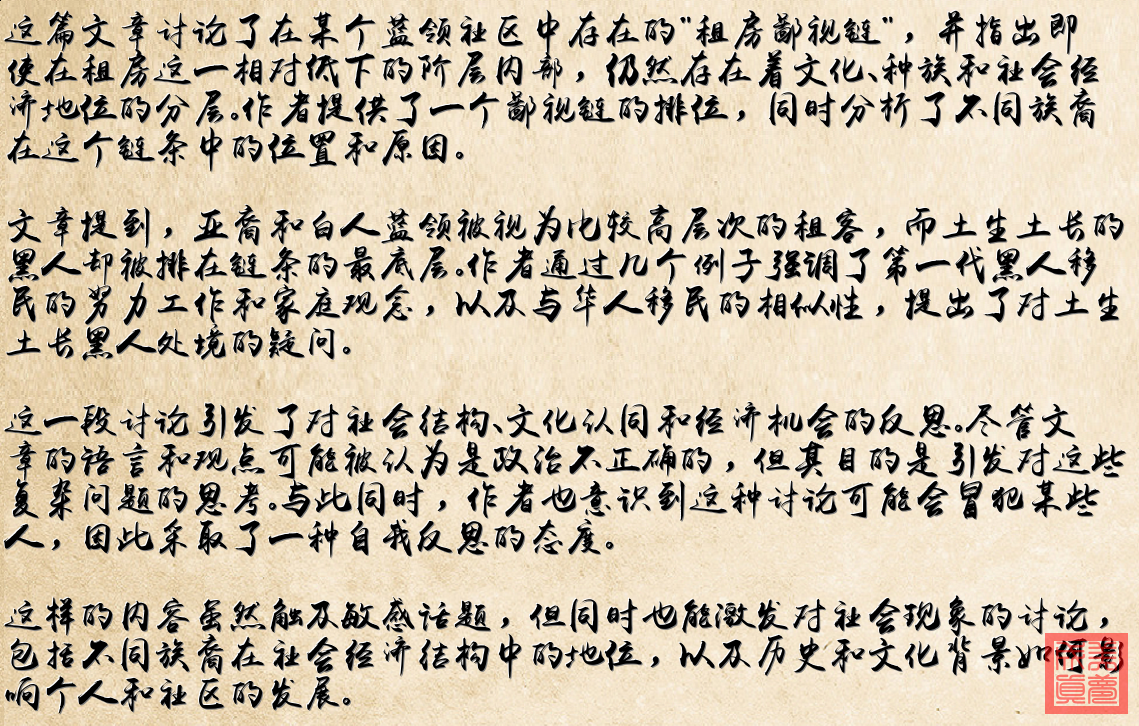 这篇文章讨论了在某个蓝领社区中存在的"租房鄙视链"，并指出即
使在租房这一相对低下的阶层内部，仍然存在着文化、种族和社会经
济地位的分层。作者提供了一个鄙视链的排位，同时分析了不同族裔
在这个链条中的位置和原因。
文章提到，亚裔和白人蓝领被视为比较高层次的租客，而土生土长的
黑人却被排在链条的最底层。作者通过几个例子强调了第一代黑人移
民的努力工作和家庭观念，以及与华人移民的相似性，提出了对土生
土长黑人处境的疑问。
这一段讨论引发了对社会结构、文化认同和经济机会的反思。尽管文
章的语言和观点可能被认为是政治不正确的，但其目的是引发对这些
复杂问题的思考。与此同时，作者也意识到这种讨论可能会冒犯某些
人，因此采取了一种自我反思的态度。
这样的内容虽然触及敏感话题，但同时也能激发对社会现象的讨论，
包括不同族裔在社会经济结构中的地位，以及历史和文化背景如何影
响个人和社区的发展。